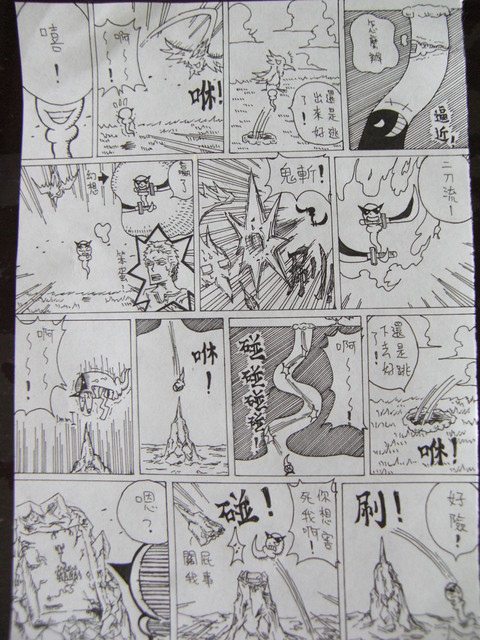 怎麼辦
逼近，
還是逃
出來好
了！
咻！
啊～～～！
嘻！
二刀流！
鬼斬！
刷
啊～～～
還是跳
下去好
了！
咻！
啊～～～！
碰碰碰碰！
咻！
啊～～～！
好險！
刷！
你想害
死我啊！
碰！
關我屁事
嗯？
幻想
笨蛋！